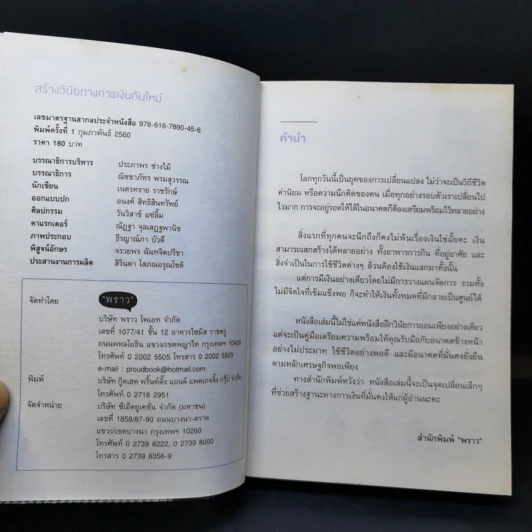 สร้างวินัยทางการเงินกันใหม่
เลขมาตรฐานสากลประจำหนังสือ 978-616-7890-45-6
พิมพ์ครั้งที่ 1 กุมภาพันธ์ 2560
ราคา 180 บาท
บรรณาธิการบริหาร ประภาพร ช่างไม้
บรรณาธิการ ณัชชาภัทร พรมสุวรรณ
นักเขียน เนตรทราย ราชรักษ์
ออกแบบปก อนงค์ สิทธิสินทรัพย์
ศิลปกรรม วันวิสาข์ แซ่ลิ้ม
คาแรกเตอร์ ณัฏฐา จุลเสฏฐพานิช
ภาพประกอบ ธีรญาณ์ภา บัวดี
พิสูจน์อักษร จรวยพร ฉันทจิตปรีชา
ประสานงานการผลิต สิรินดา โสภณอรุณโชติ
จัดทำโดย "พราว"
บริษัท พราว โพเอท จำกัด
เลขที่ 1077/41 ชั้น 12 อาคารไซมิส ราชครู
ถนนพหลโยธิน แขวงเขตพญาไท กรุงเทพฯ 10400
โทรศัพท์ 0 2002 5505 โทรสาร 0 2002 5509
e-mail : proudbook@hotmail.com
พิมพ์ บริษัท กู๊ดเฮด พริ้นท์ติ้ง แอนด์ แพคเกจจิ้ง กรุ๊ป จำกัด
โทรศัพท์ 0 2718 2951
จัดจำหน่าย บริษัท ซีเอ็ดยูเคชั่น จำกัด (มหาชน)
เลขที่ 1858/87-90 ถนนบางนา-ตราด
แขวง/เขตบางนา กรุงเทพฯ 10260
โทรศัพท์ 0 2739 8222, 0 2739 8000
โทรสาร 0 2739 8356-9
คำนำ
โลกทุกวันนี้เป็นยุคของการเปลี่ยนแปลง ไม่ว่าจะเป็นวิถีชีวิต
ค่านิยม หรือความนึกคิดของคน เมื่อทุกอย่างรอบตัวเราเปลี่ยนไป
ไวมาก การจะอยู่รอดให้ได้ในอนาคตก็ต้องเตรียมพร้อมไว้หลายอย่าง
สิ่งแรกที่ทุกคนจะนึกถึงก็คงไม่พ้นเรื่องเงินใช่มั้ยคะ เงิน
สามารถเสกสร้างได้หลายอย่าง ทั้งอาหารการกิน ที่อยู่อาศัย และ
สิ่งจำเป็นในการใช้ชีวิตต่างๆ ล้วนต้องใช้เงินแลกมาทั้งนั้น
แต่การมีเงินอย่างเดียวโดยไม่มีการวางแผนจัดการ รวมทั้ง
ไม่มีจิตใจที่เข้มแข็งพอ ก็จะทำให้เงินทั้งหมดที่มีกลายเป็นศูนย์ได้
หนังสือเล่มนี้ไม่ใช่แค่หนังสือฝึกวินัยการออมเพียงอย่างเดียว
แต่จะเป็นคู่มือเตรียมความพร้อมให้คุณรับมือกับอนาคตข้างหน้า
อย่างไม่ประมาท ใช้ชีวิตอย่างพอดี และมีอนาคตที่มั่นคงยั่งยืน
ตามหลักเศรษฐกิจพอเพียง
ทางสำนักพิมพ์หวังว่า หนังสือเล่มนี้จะเป็นจุดเปลี่ยนเล็กๆ
ที่ช่วยสร้างฐานะทางการเงินที่มั่นคงให้แก่ผู้อ่านนะคะ
สำนักพิมพ์ "พราว"